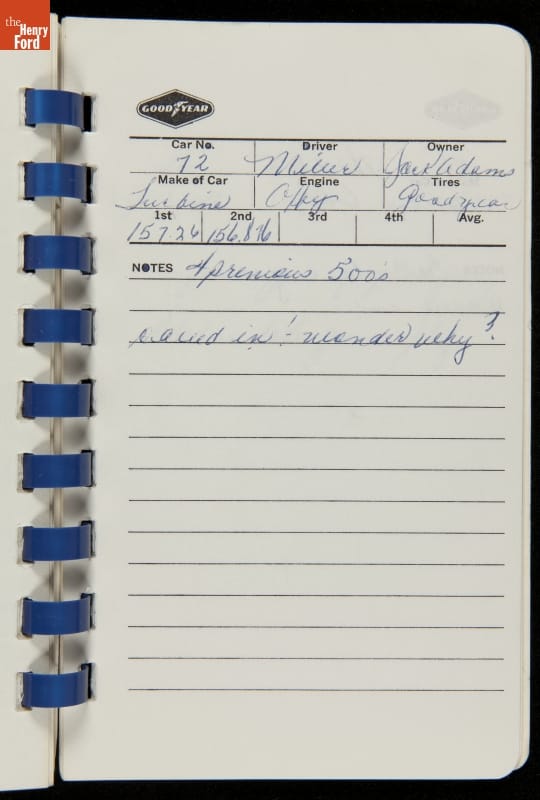 the
Henry
Ford
GOODYEAR
Car No. Driver Owner
72 Miller Jack Adams
Make of Car Engine Tires
Turbine Offy Goodyear
1st 2nd 3rd 4th Avg.
157.26 156.816
NOTES 4 previous 500's
caved in! - wonder why?